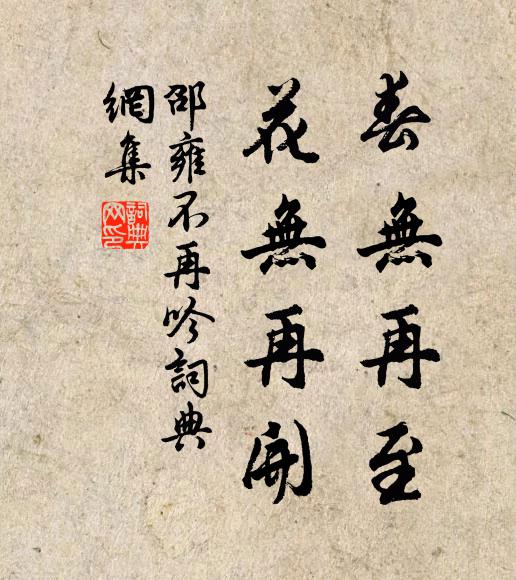 春無再至
花無再開
邵雍不再吟詞典
網集
詞典
网印